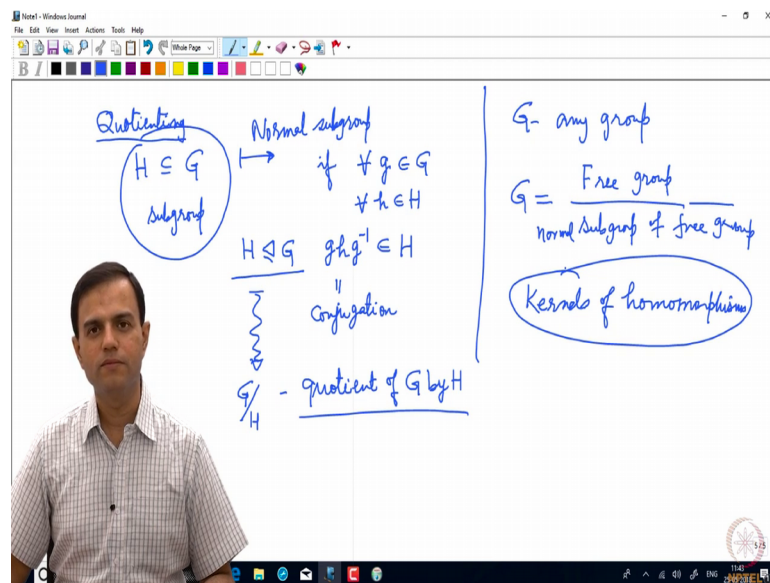 Note1 - Windows Journal
File Edit View Insert Actions Tools Help
Whole Page
B I
Quotienting
H ⊆ G
subgroup
Normal subgroup
if ∀ g ∈ G
∀ h ∈ H
H ⊴ G ghg⁻¹ ∈ H
"
conjugation
G/H - quotient of G by H
G - any group
G = Free group
normal subgrop of free group
Kernels of homomorphisms
5/5
11:43
ENG
NPTEL